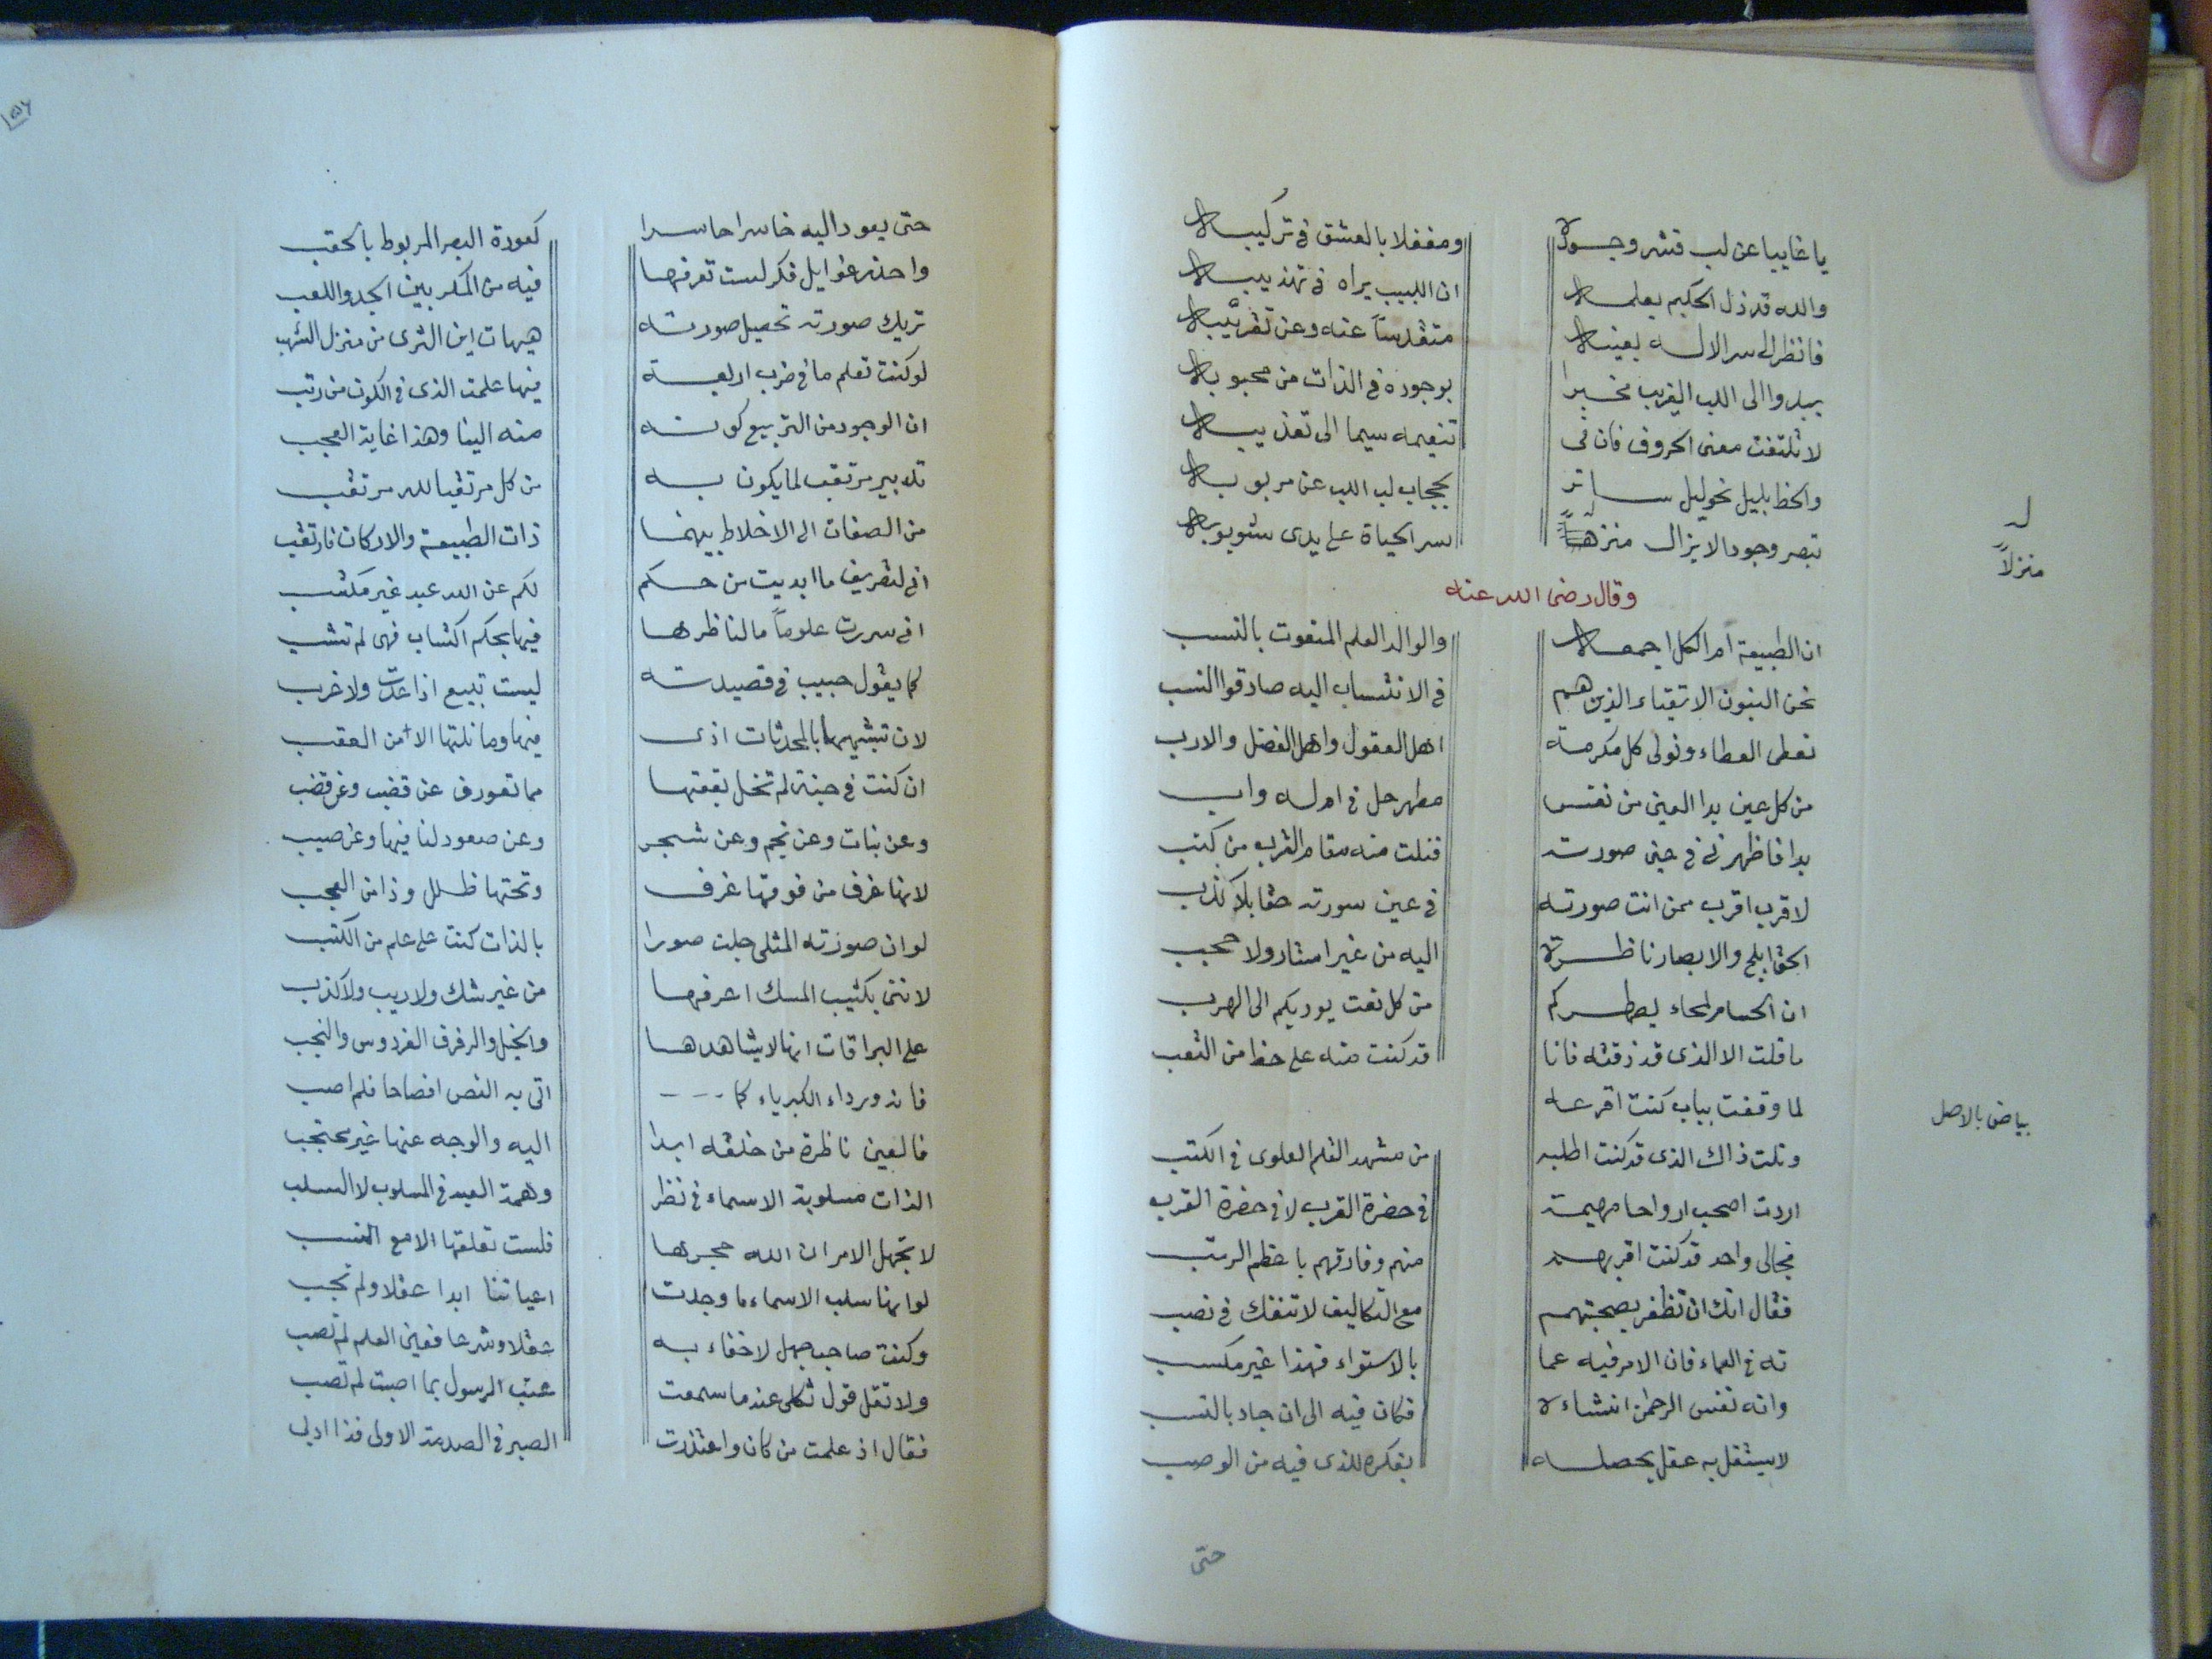 يا غايبا عن لب قشر وجوده ومغفلا بالعشق في تركيبه
والله قد زل الحكيم بعلمه ان اللبيب يراه في تهذيبه
فانظر الى سر الاله بعينه متقدسا عنه وعن تقريبه
يبدوا الى اللب الغريب مخبرا بوجوده في الذات من محبوبه
لا تلتفت معنى الحروف فان في تنعيمه سيما الى تعذيبه
والحظ بليل نحو ليل ساتر بحجاب لب اللب عن مربوبه
تبصر وجود الايزال منزها بسر الحياة على يدى شوبوبه
له
منزلاً
وقال رضى الله عنه
ان الطبيعة ام الكل اجمعه والوالد العلم المنعوت بالنسب
نحن البنون الاتقياء الذين هم في الانتساب اليه صادقوا النسب
نعطى العطاء ونولى كل مكرمة اهل العقول واهل الفضل والادب
من كل عين بدا العين من نفس مطهر حل في ام له واب
بدا فاظهرني في حين صورته فنلت منه مقام القرب من كثب
لا قرب اقرب ممن انت صورته في عين سورته حقا بلا كذب
الحق ابلج والابصار ناظرة اليه من غير استار ولا حجب
ان الحسام لمحاء يطهركم من كل نعت يوديكم الى الهرب
ما قلت الا الذى قد ذقته فانا قد كنت منه على حظ من التعب
لما وقفت بباب كنت اقرعه
بياض بالاصل
ونلت ذاك الذى قد كنت اطلبه من مشهد القلم العلوى في الكتب
اردت اصحب ارواحا مهيمة في حضرة القرب لا في حضرة القرب
فجالى واحد قد كنت اقربهم منهم وفارقهم باعظم الرتب
فقال انك ان تظفر بصحبتهم مع التكاليف لا تنفك في نصب
ته في العماء فان الامر فيه عما بالاستواء فهذا غير مكتسب
وانه نفس الرحمن انشاءه فكان فيه الى ان جاد بالنسب
لا يستقل به عقل يحصله بفكره للذى فيه من الوصب
حتى
حتى يعود اليه خاسرا حاسرا كعودة البصر المربوط بالحقب
واحذر غوايل فكر لست تعرفها فيه من المكر بين الجد واللعب
تريك صورته تحصيل صورته هيهات اين الثرى من منزل الشهب
لو كنت تعلم ما في ضرب اربعة فيها علمت الذى في الكون من رتب
ان الوجود من التربيع كونه منه الينا وهذا غاية العجب
تدبير مرتقب لما يكون به من كل مرتقبا لله مرتقب
من الصفات الى الاخلاط بينهما ذات الطبيعة والاركان فارتقب
انى لتصريف ما ابديت من حكم لكم عن الله عبد غير مكتسب
انى سررت علوماً ما لناظرها فيها بحكم اكتساب فهى لم تشب
كما يقول حبيب في قصيدته ليست بنبع اذا عدت ولا غرب
لان تشبيهها بالمحدثات اذى فيها وما نلتها الا من العقب
ان كنت في جنة لم تخل بقعتها مما تعورف عن قضب وعن قضب
وعن نبات وعن نجم وعن شجر وعن صعود لنا فيها وعن صبب
لانها غرف من فوقها غرف وتحتها ظلل وذا من العجب
لو ان صورته المثلى جلت صورا بالذات كنت على علم من الكتب
لاننى بكثيب المسك اعرفها من غير شك ولا ريب ولا كذب
على البراقات انها لا يشاهدها والخيل والرفرف الفردوس والنجب
فانه ورداء الكبرياء كما ---- اتى به النص افصاحا فلم اصب
فالعين ناظرة من خلقه ابدا اليه والوجه عنها غير محتجب
الذات مسلوبة الاسماء في نظر وهمة العبد في المسلوب لا السلب
لا تجهل الامر ان الله حجرها فلست تعلقها الا مع النسب
لو انها سلب الاسماء ما وجدت اعياننا ابدا عقلا ولم تجب
وكنت صاحب جهل لا خفاء به عقلا وشرعا فعين العلم لم تصب
ولا تقل قول ثكلى عندما سمعت عتب الرسول بما اصبت لم تصب
فقال اذ علمت من كان واعتذرت الصبر في الصدمة الاولى فذا ادبى